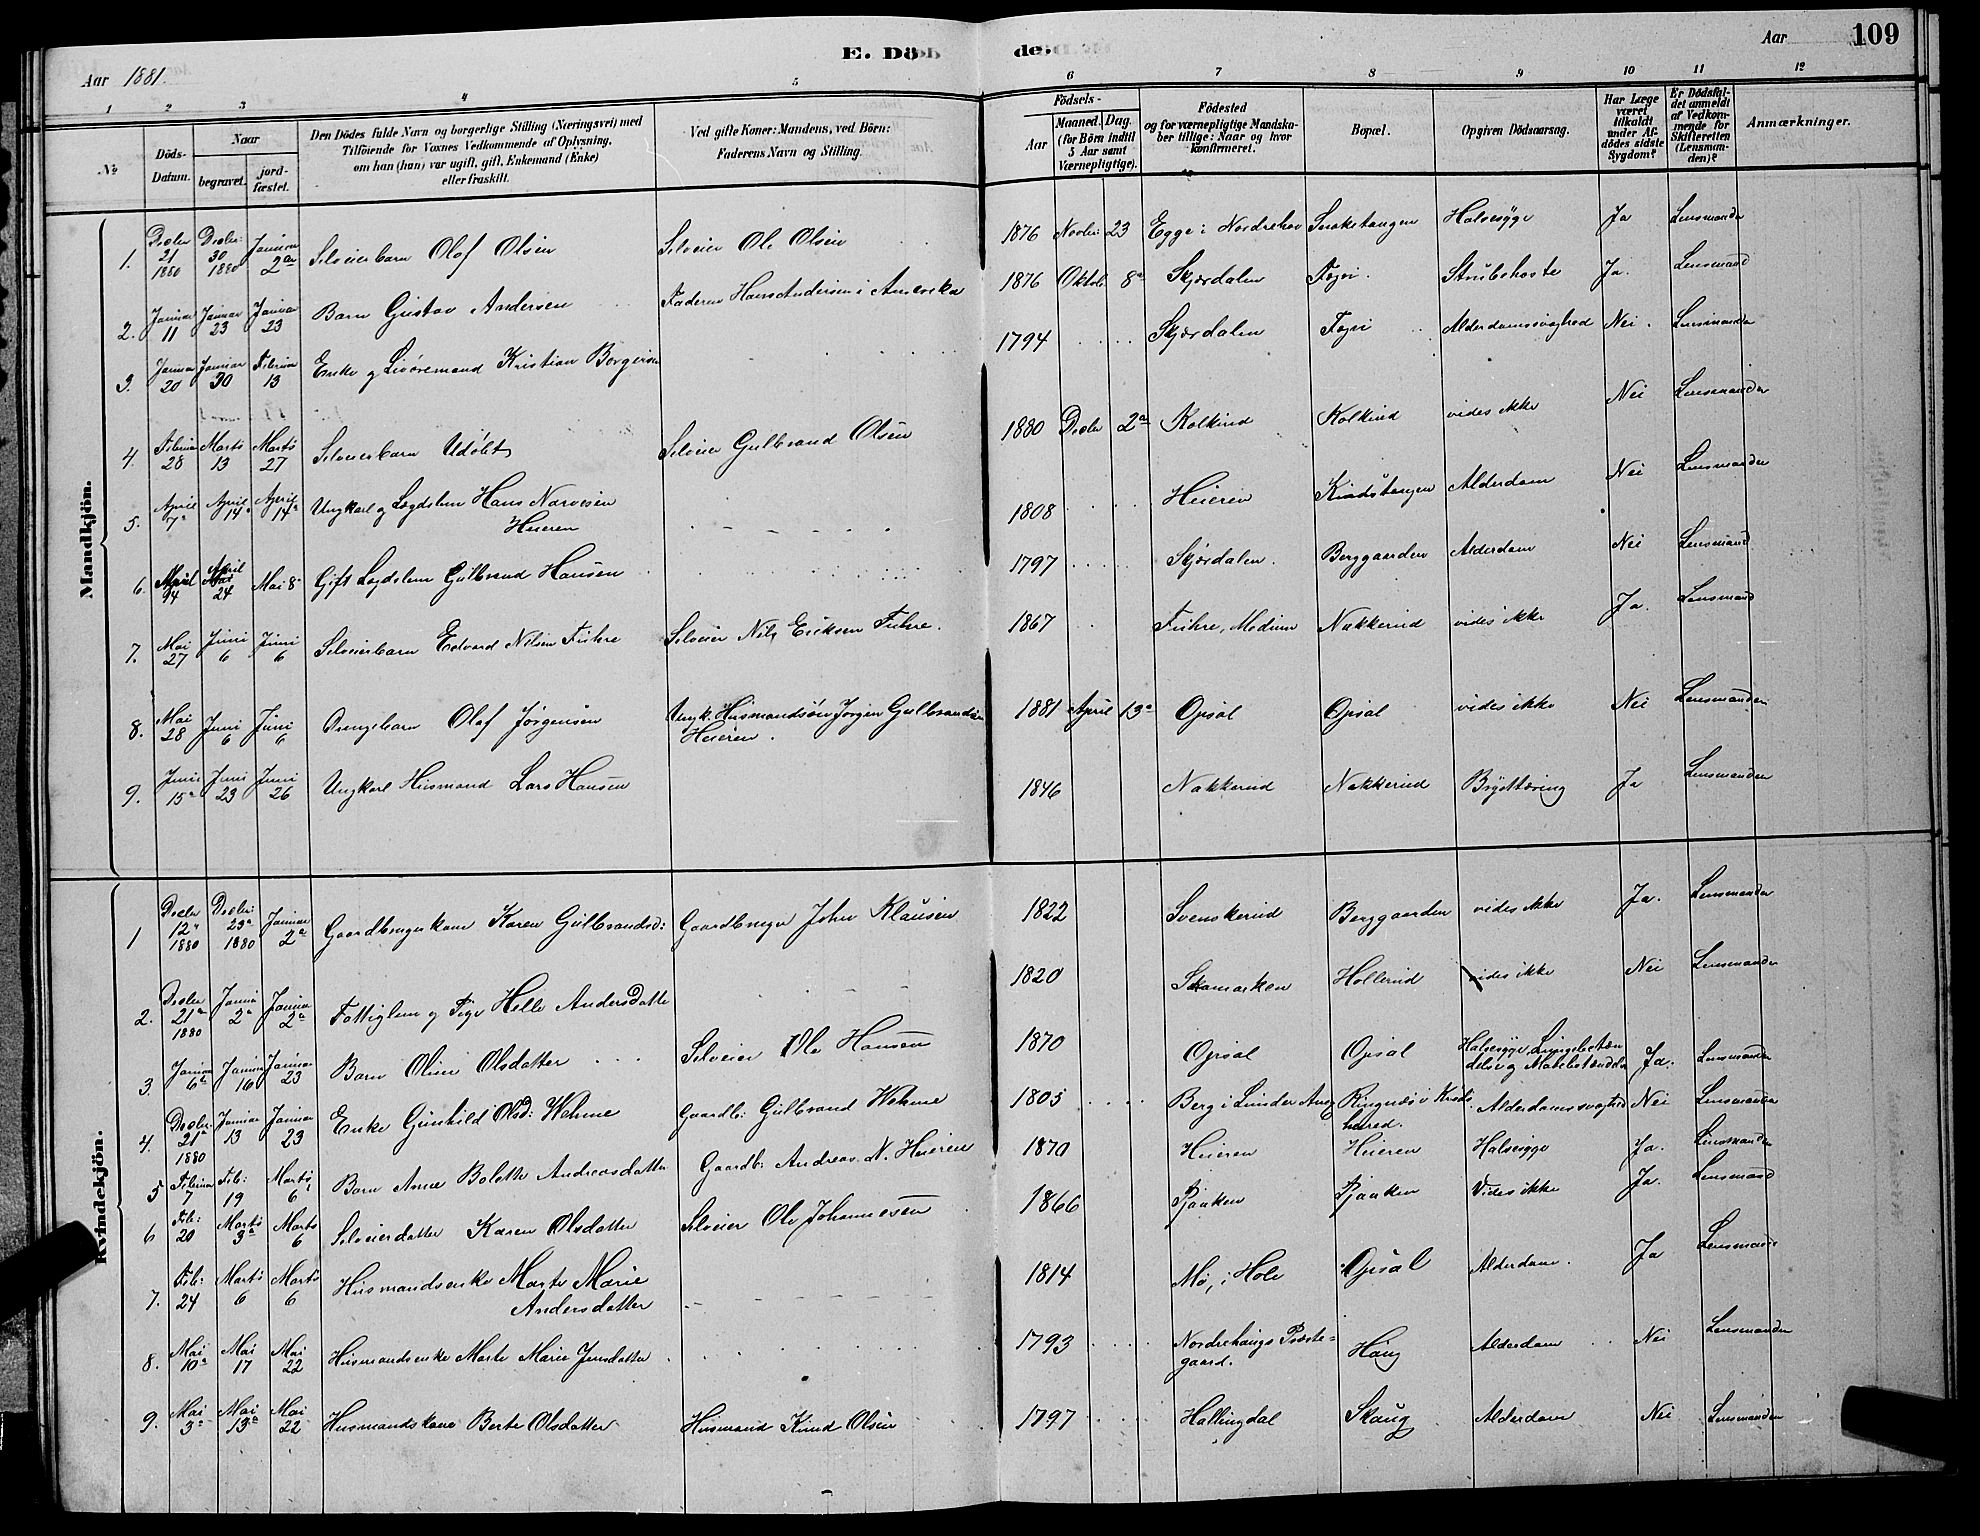 109
E. Döde.
Aar 1881.
Aar
1 2 3 4 5 6 7 8 9 10 11 12
No
Döds-Datum.
Naar
begravet.
jordfæstet.
Den Dödes fulde Navn og borgerlige Stilling (Næringsvei) med
Tilföiende for Voxnes Vedkommende af Oplysning,
om han (hun) var ugift, gift, Enkemand (Enke)
eller fraskilt.
Ved gifte Koner: Mandens, ved Börn:
Faderens Navn og Stilling.
Födsels-
Aar
Maaned. Dag.
(for Börn indtil
5 Aar samt
Værnepligtige).
Födested
og for værnepligtige Mandska-
ber tillige: Naar og hvor
konfirmeret.
Bopæl.
Opgiven Dödsaarsag.
Har Læge
været
tilkaldt
under Af-
dödes sidste
Sygdom?
Er Dödsfal-
det anmeldt
af Vedkom-
mende for
Skifteretten
(Lensman-
den)?
Anmærkninger.
Mandkjön.
1. Decbr 21 1880 Decbr: 30 1880 Januar 2an Selveierbarn Olaf Olsen Selveier Ole Olsen 1876 Novbr: 23 Egge i Nordrehov Snoketangen Halsesyge Ja Lensmanden
2. Januar 11 Januar 23 Januar 23 Barn Gustav Andersen Faderen Hans Andersen i Amerika 1876 Oktob 8a Skjærdalen Togri Strubehoste Ja. Lensmand
3. Januar 20 Januar 30 Februar 13 Enke og Kristian Borgersen 1794 Skjærdalen Togri Alderdomssvaghed Nei. Lensmanden
4. Februar 28 Marts 13 Marts 27 Selveierbarn Udøbt Selveier Gulbrand Olsen 1880 Decbr 2a Kolkind Kolkind vides ikke Nei Lensmanden
5. April 7a April 14. April 14a Ungkarl og Lægdslem Hans Narvesen
Heieren 1808 Heieren Alderdom Nei Lensmanden
6. April 14 April 24 Mai 8 Gift Legdslem Gulbrand Hansen 1797 Skjærdalen. Berggaarden Alderdom Nei Lensmand
7. Mai 27 Juni 6 Juni 6 Selveierbarn Edvard Nilsen Fuhre Selveier Nils Eriksen Fuhre. 1867 Fuhre, Modum Nakkerud vides ikke Ja. Lensmand
8. Mai 28 Juni 6 Juni 6 Olaf Jørgensen Ungk. Husmandsøn Jørgen Gulbrandsen
Heieren. 1881 April 13a Opsal Opsal vides ikke Nei Lensmanden
9. Juni 15a Juni 23 Juni 26 Ungkarl Husmand Lars Hansen 1846 Nakkerud Nakkerud Brysttæring Ja Lensmanden
Kvindekjön.
1 Decbr 12a 1880 Decbr: 23a 1880 Januar 2a Gaardbrugerkone Karen Gulbrandsd: Gaardbruger John Klausen 1822 Svenskerud Berggaarden vides ikke Ja. Lensmanden
2. Decbr 21a 1880 Januar 2a Januar 2a Fattiglem og Pige Helle Andersdatter 1820 Skamarken Hollerud vides ikke Nei Lensmanden
3. Januar 6a Januar 16 Januar 23 Barn Oline Olsdatter Selveier Ole Hansen 1870 Opsal Opsal Halsesyge, Ja. Lensmanden
4. Decbr. 21a 1880 Januar 13 Januar 23 Enke Gunhild Olsd: Wehme Gaardb: Gulbrand Wehme 1805 Berg i Lunder Ringnæs i Kryds-
herred. Alderdomssvaghed Nei Lensmanden
5 Februar 7 Feb: 19 Marts 6 Barn Anne Bolette Andreasdatter Gaardb: Andreas N. Heieren 1870 Heieren Heieren Halsesyge Ja. Lensmanden
6 Feb: 20 Marts 3a Marts 6 Selveierdatter Karen Olsdatter Selveier Ole Johannesen 1866 Pjaaken Pjaaken Vides ikke Ja. Lensmand
7. Feb: 24 Marts 6 Marts 6 Husmandsenke Marte Marie
Andersdatter 1814 Mo, i Hole Opsal Alderdom. Ja Lensmand
8. Mai 10a Mai 17 Mai 22 Husmandsenke Marte Marie Jensdatter 1793 Norderhaugs Præste=
gaard. Haug Alderdom Nei Lensmanden
9. Mai 3a Mai 13a Mai 22 Husmandskone Berte Olsdatter Husmand Knud Olsen 1797 Hallingdal Skaug Alderdom Nei Lensmanden